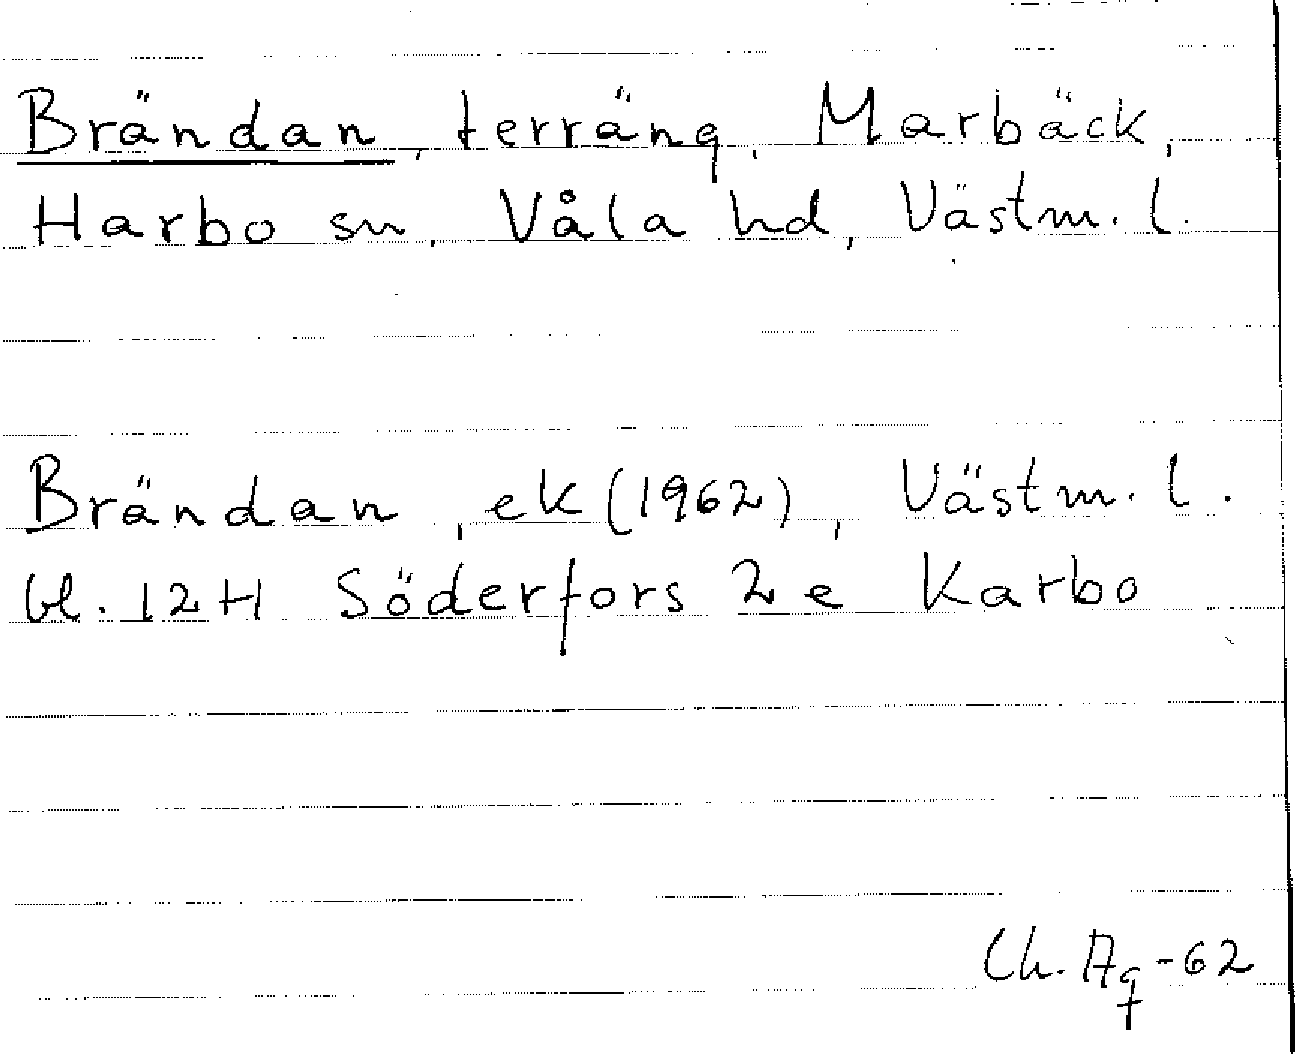 Brändan, terräng, Marbäck,
Harbo sn, Våla hd, Västm. l.
Brändan, ek (1962), Västm. l.
bl. 12H Söderfors 2e Karbo
Ch. Ag -62